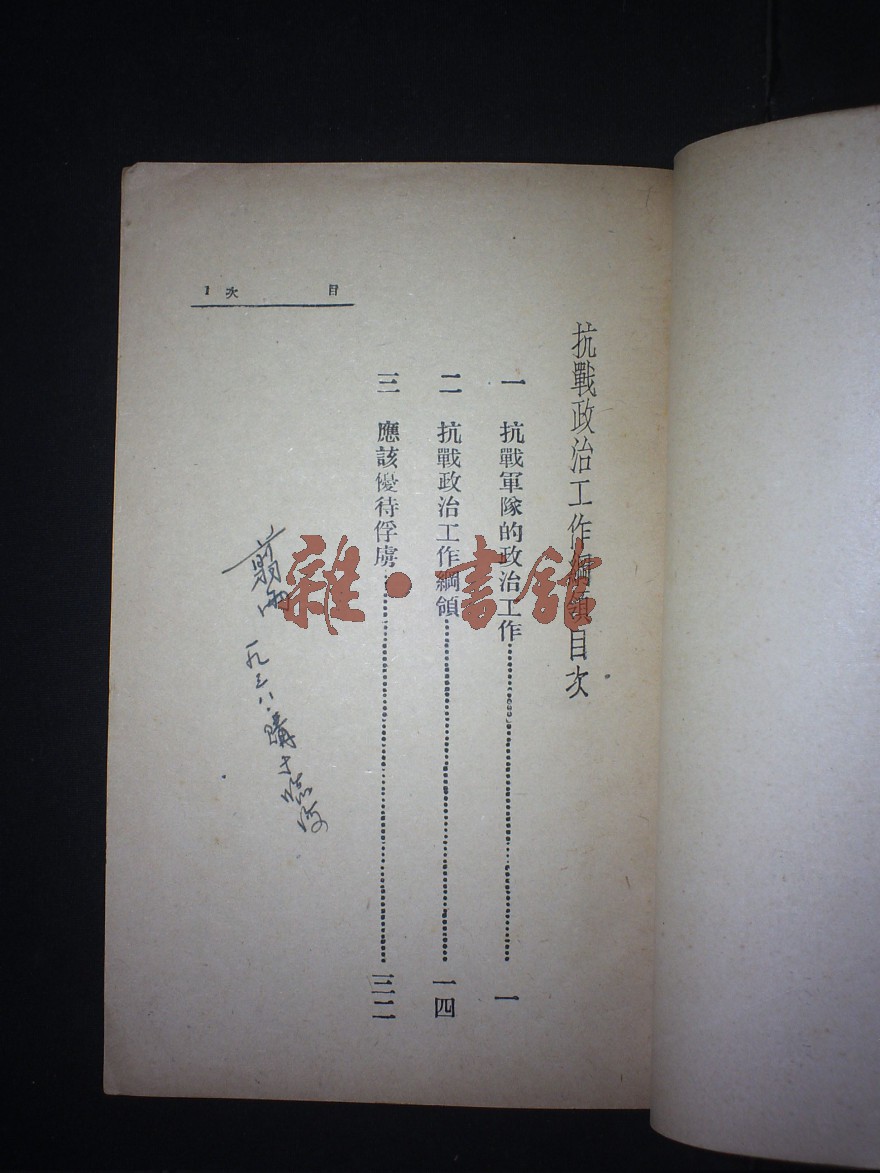 抗戰政治工作綱領目次
一 抗戰軍隊的政治工作 一
二 抗戰政治工作綱領 一四
三 應該優待俘虜 三二
目 次 1
翦雨
一九三八、購于臨汾
雜·書館